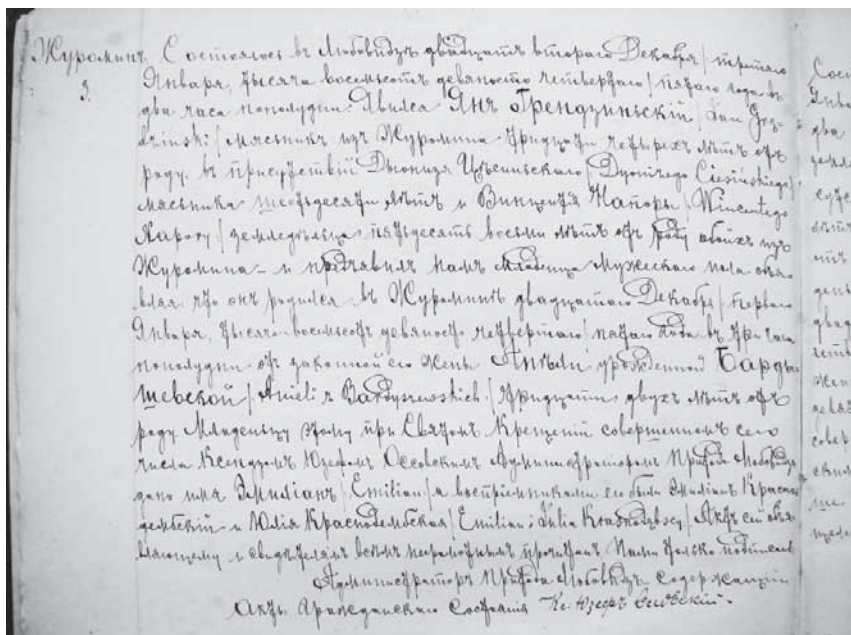 Журоминъ. Состоялось въ Любовидзѣ двадцать втораго Декабря / третьяго
3.
Января, тысяча восемьсотъ девяносто четвертаго / пятаго года въ
два часа пополудни. Явился Янъ Грендзиньскій / Jan Grę-
dzinski / мясникъ изъ Журомина тридцати четырехъ лѣтъ отъ
роду, въ присутствіи Дыонизя Цѣсиньскаго / Dyonizego Ciesińskiego /
мясника шестьдесяти лѣтъ и Винцентія Напоры / Wincentego
Napory / земледѣльца пятьдесятъ восьми лѣтъ отъ роду обоихъ изъ
Журомина – и предъявилъ намъ младенца мужескаго пола объя-
вляя, что онъ родился въ Журоминѣ двадцатаго Декабря / перваго
Января, тысяча восемьсотъ девяносто четвертаго / пятаго года въ три часа
пополудни отъ законной его жены Анѣли урожденной Барды-
шевской / Anieli z Bardyszewskich / тридцати двухъ лѣтъ отъ
роду. Младенцу этому при Святомъ Крещеніи совершенномъ сего
числа Ксендзомъ Юзефомъ Оссовскимъ Администраторомъ Прихода Любовидзъ
дано имя Эмиліанъ / Emilian / а воспріемниками его были Эмиліанъ Красно-
дембскій и Юлія Краснодембская / Emilian i Julia Krasnodębscy / Актъ сей объя-
вляющему и свидѣтелямъ всѣмъ неграмотнымъ прочитанъ Нами только подписанъ
Администраторъ Прихода Любовидзъ содержащій
Акты Гражданскаго Состоянія Кс. Юзефъ Оссовскій.